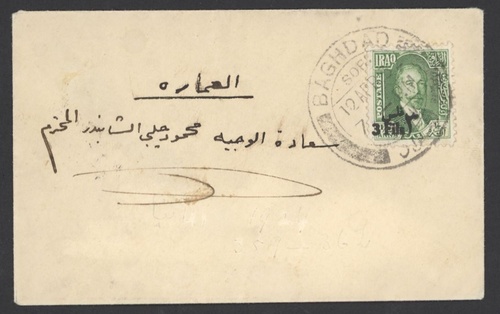 العماره
سعادة الوجيه محمود جلبي الشابندر المحترم
BAGHDAD
IRAQ
POSTAGE
3 Fils